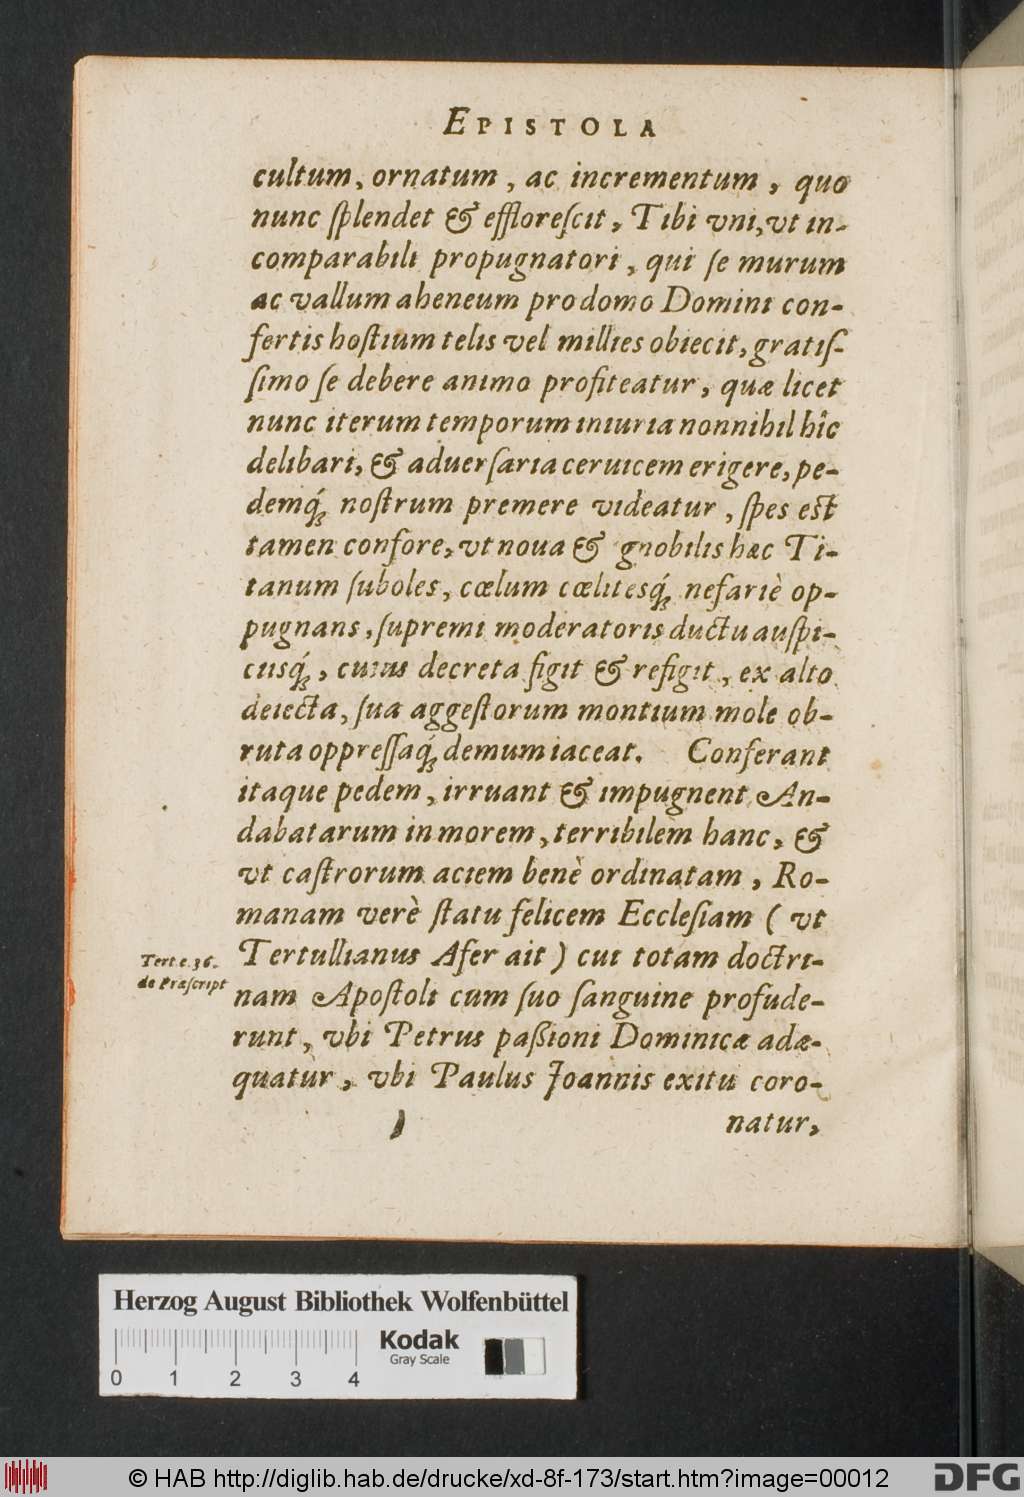 EPISTOLA
cultum, ornatum, ac incrementum, quo
nunc ſplendet & effloreſcit, Tibi vni, vt in-
comparabili propugnatori, qui ſe murum
ac vallum aheneum pro domo Domini con-
fertis hoſtium telis vel millies obiecit, gratiſ-
ſimo ſe debere animo profiteatur, quæ licet
nunc iterum temporum iniuria nonnihil hîc
delibari, & aduerſaria ceruicem erigere, pe-
demq́; noſtrum premere videatur, ſpes eſt
tamen confore, vt noua & gnobilis hæc Ti-
tanum ſuboles, cœlum cœlitesq́; nefariè op-
pugnans, ſupremi moderatoris ductu auſpi-
ciisq́;, cuius decreta figit & refigit, ex alto
deiecta, ſua aggeſtorum montium mole ob-
ruta oppreſſaq́; demum iaceat. Conferant
itaque pedem, irruant & impugnent An-
dabatarum in morem, terribilem hanc, &
vt caſtrorum aciem benè ordinatam, Ro-
manam verè ſtatu felicem Eccleſiam (vt
Tertullianus Afer ait) cui totam doctri-
Tert. c. 36.
de Præſcript
nam Apoſtoli cum ſuo ſanguine profude-
runt, vbi Petrus paßioni Dominicæ adæ-
quatur, vbi Paulus Joannis exitu coro-
natur,
Herzog August Bibliothek Wolfenbüttel
Kodak
Gray Scale
0 1 2 3 4
© HAB http://diglib.hab.de/drucke/xd-8f-173/start.htm?image=00012
DFG